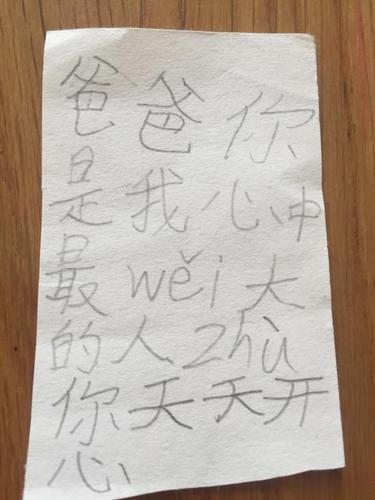 爸爸你
是我心中
最wěi大
的人zhù
你天天开
心